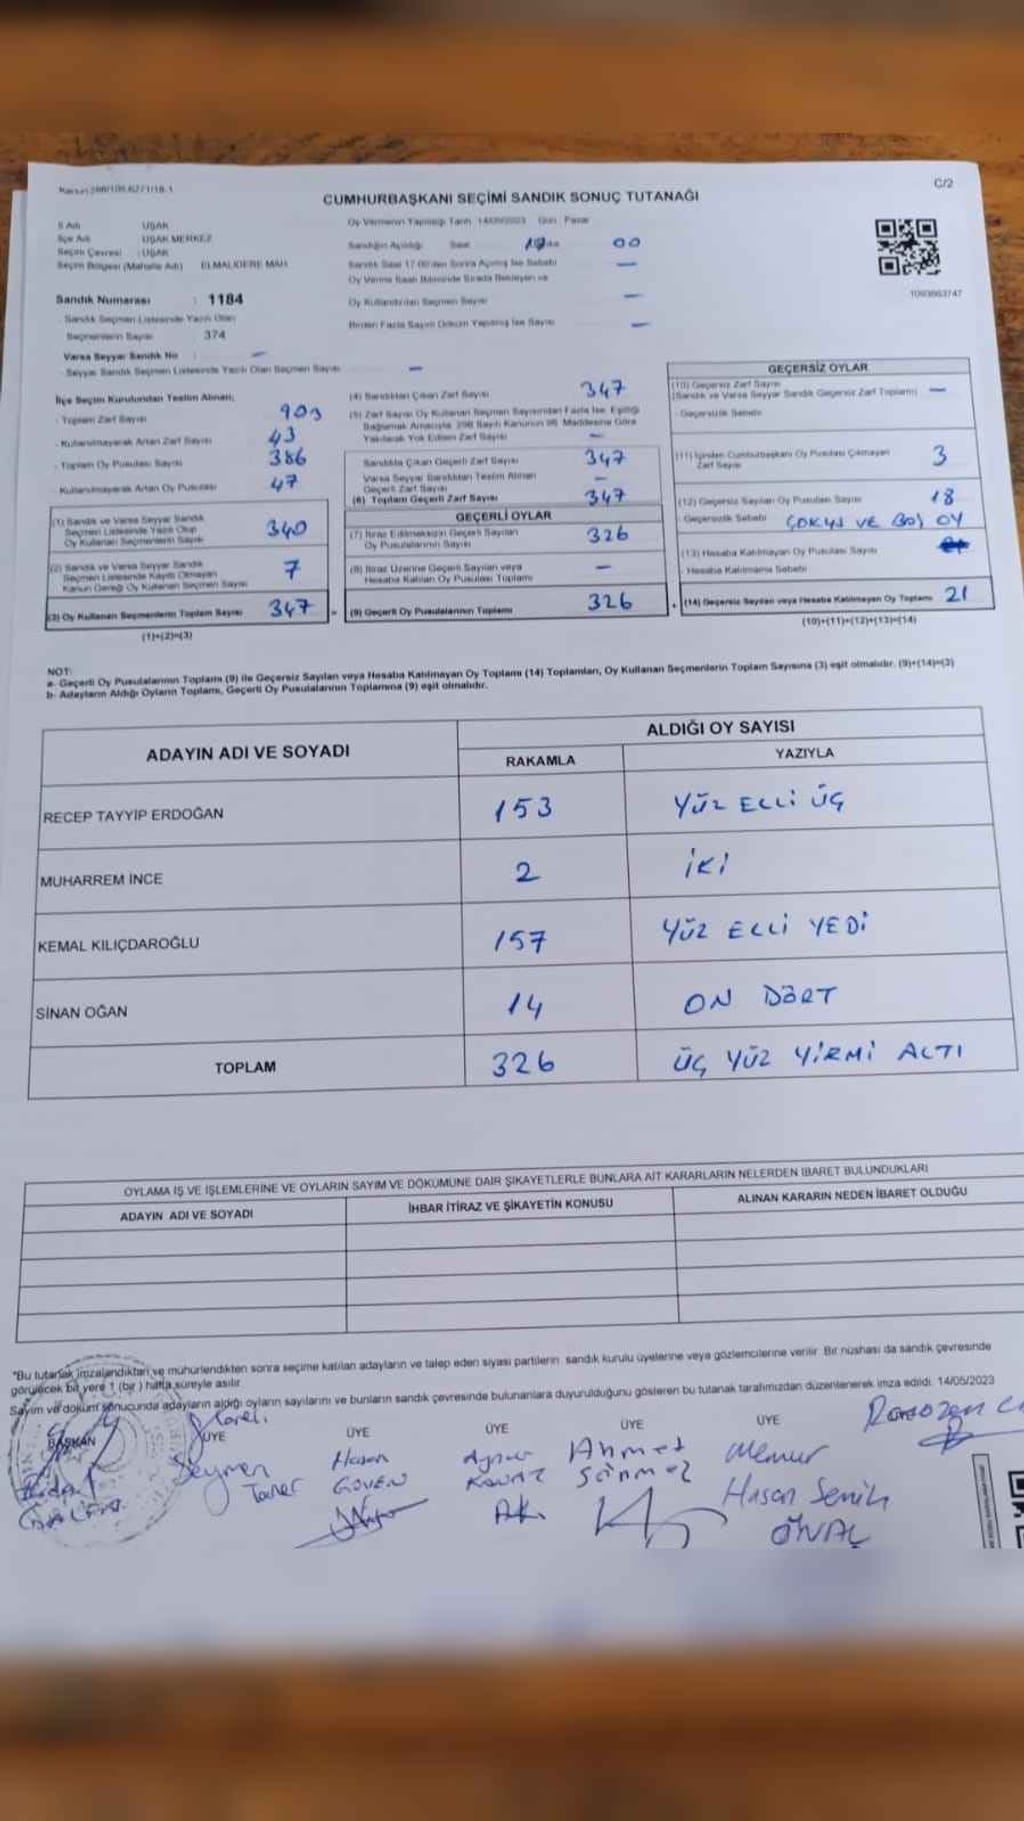 C/2
CUMHURBAŞKANI SEÇİMİ SANDIK SONUÇ TUTANAĞI
İl Adı : UŞAK
İlçe Adı : UŞAK MERKEZ
Seçim Çevresi : UŞAK
Seçim Bölgesi (Mahalle Adı) : ELMALIDERE MAH.
Sandık Numarası : 1184
Sandık Seçmen Listesinde Yazılı Olan
Seçmenlerin Sayısı : 374
Varsa Seyyar Sandık No : —
Seyyar Sandık Seçmen Listesinde Yazılı Olan Seçmen Sayısı —
Oy Vermenin Yapıldığı Tarih 14/05/2023 Gün Pazar
Sandığın Açıldığı Saat 00
Sandık Saat 17.00'den Sonra Açılmış İse Sebebi —
Oy Kullandırılan Seçmen Sayısı —
Birden Fazla Sayım Döküm Yapılmış İse Sayısı —
1093663747
İlçe Seçim Kurulundan Teslim Alınan;
- Toplam Zarf Sayısı
- Kullanılmayarak Artan Zarf Sayısı 43
- Toplam Oy Pusulası Sayısı 386
- Kullanılmayarak Artan Oy Pusulası 47
(1) Sandık ve Varsa Seyyar Sandık
Seçmen Listesinde Yazılı Olup
Oy Kullanan Seçmenlerin Sayısı 340
(2) Sandık ve Varsa Seyyar Sandık
Seçmen Listesinde Kayıtlı Olmayan
Kanun Gereği Oy Kullanan Seçmen Sayısı 7
(3) Oy Kullanan Seçmenlerin Toplam Sayısı 347
(1)+(2)=(3)
(4) Sandıktan Çıkan Zarf Sayısı 347
(5) Zarf Sayısı Oy Kullanan Seçmen Sayısından Fazla İse, Eşitliği
Sağlamak Amacıyla 298 Sayılı Kanunun 98. Maddesine Göre
Yakılarak Yok Edilen Zarf Sayısı —
Sandıkta Çıkan Geçerli Zarf Sayısı 347
Varsa Seyyar Sandıktan Teslim Alınan
Geçerli Zarf Sayısı —
(6) Toplam Geçerli Zarf Sayısı 347
GEÇERLİ OYLAR
(7) İtiraz Edilmeksizin Geçerli Sayılan
Oy Pusulalarının Sayısı 326
(8) İtiraz Üzerine Geçerli Sayılan veya
Hesaba Katılan Oy Pusulası Toplamı —
(9) Geçerli Oy Pusulalarının Toplamı 326
GEÇERSİZ OYLAR
(10) Geçersiz Zarf Sayısı
(Sandık ve Varsa Seyyar Sandık Geçersiz Zarf Toplamı) —
- Geçersizlik Sebebi
(11) İçinden Cumhurbaşkanı Oy Pusulası Çıkmayan
Zarf Sayısı 3
(12) Geçersiz Sayılan Oy Pusulası Sayısı 18
- Geçersizlik Sebebi VE BOŞ OY
(13) Hesaba Katılmayan Oy Pusulası Sayısı
- Hesaba Katılmama Sebebi
(14) Geçersiz Sayılan veya Hesaba Katılmayan Oy Toplamı 21
(10)+(11)+(12)+(13)=(14)
NOT:
a- Geçerli Oy Pusulalarının Toplamı (9) ile Geçersiz Sayılan veya Hesaba Katılmayan Oy Toplamı (14) Toplamları, Oy Kullanan Seçmenlerin Toplam Sayısına (3) eşit olmalıdır. (9)+(14)=(3)
b- Adayların Aldığı Oyların Toplamı, Geçerli Oy Pusulalarının Toplamına (9) eşit olmalıdır.
ADAYIN ADI VE SOYADI ALDIĞI OY SAYISI
RAKAMLA YAZIYLA
RECEP TAYYİP ERDOĞAN 153 YÜZ ELLİ ÜÇ
MUHARREM İNCE 2 İKİ
KEMAL KILIÇDAROĞLU 157 YÜZ ELLİ YEDİ
SİNAN OĞAN 14 ON DÖRT
TOPLAM 326 ÜÇ YÜZ YİRMİ ALTI
OYLAMA İŞ VE İŞLEMLERİNE VE OYLARIN SAYIM VE DÖKÜMÜNE DAİR ŞİKAYETLERLE BUNLARA AİT KARARLARIN NELERDEN İBARET BULUNDUKLARI
ADAYIN ADI VE SOYADI İHBAR İTİRAZ VE ŞİKAYETİN KONUSU ALINAN KARARIN NEDEN İBARET OLDUĞU
"Bu tutanak imzalandıktan ve mühürlendikten sonra seçime katılan adayların ve talep eden siyasi partilerin sandık kurulu üyelerine veya gözlemcilerine verilir. Bir nüshası da sandık çevresinde
görülecek bir yere 1 (bir) hafta süreyle asılır.
Sayım ve döküm sonucunda adayların aldığı oyların sayılarını ve bunların sandık çevresinde bulunanlara duyurulduğunu gösteren bu tutanak tarafımızdan düzenlenerek imza edildi. 14/05/2023
BAŞKAN ÜYE ÜYE ÜYE ÜYE ÜYE
Seymen Taner
Hasan GÜVEN
Ahmet SÖNMEZ
Memur Hasan Semih ÖNAL